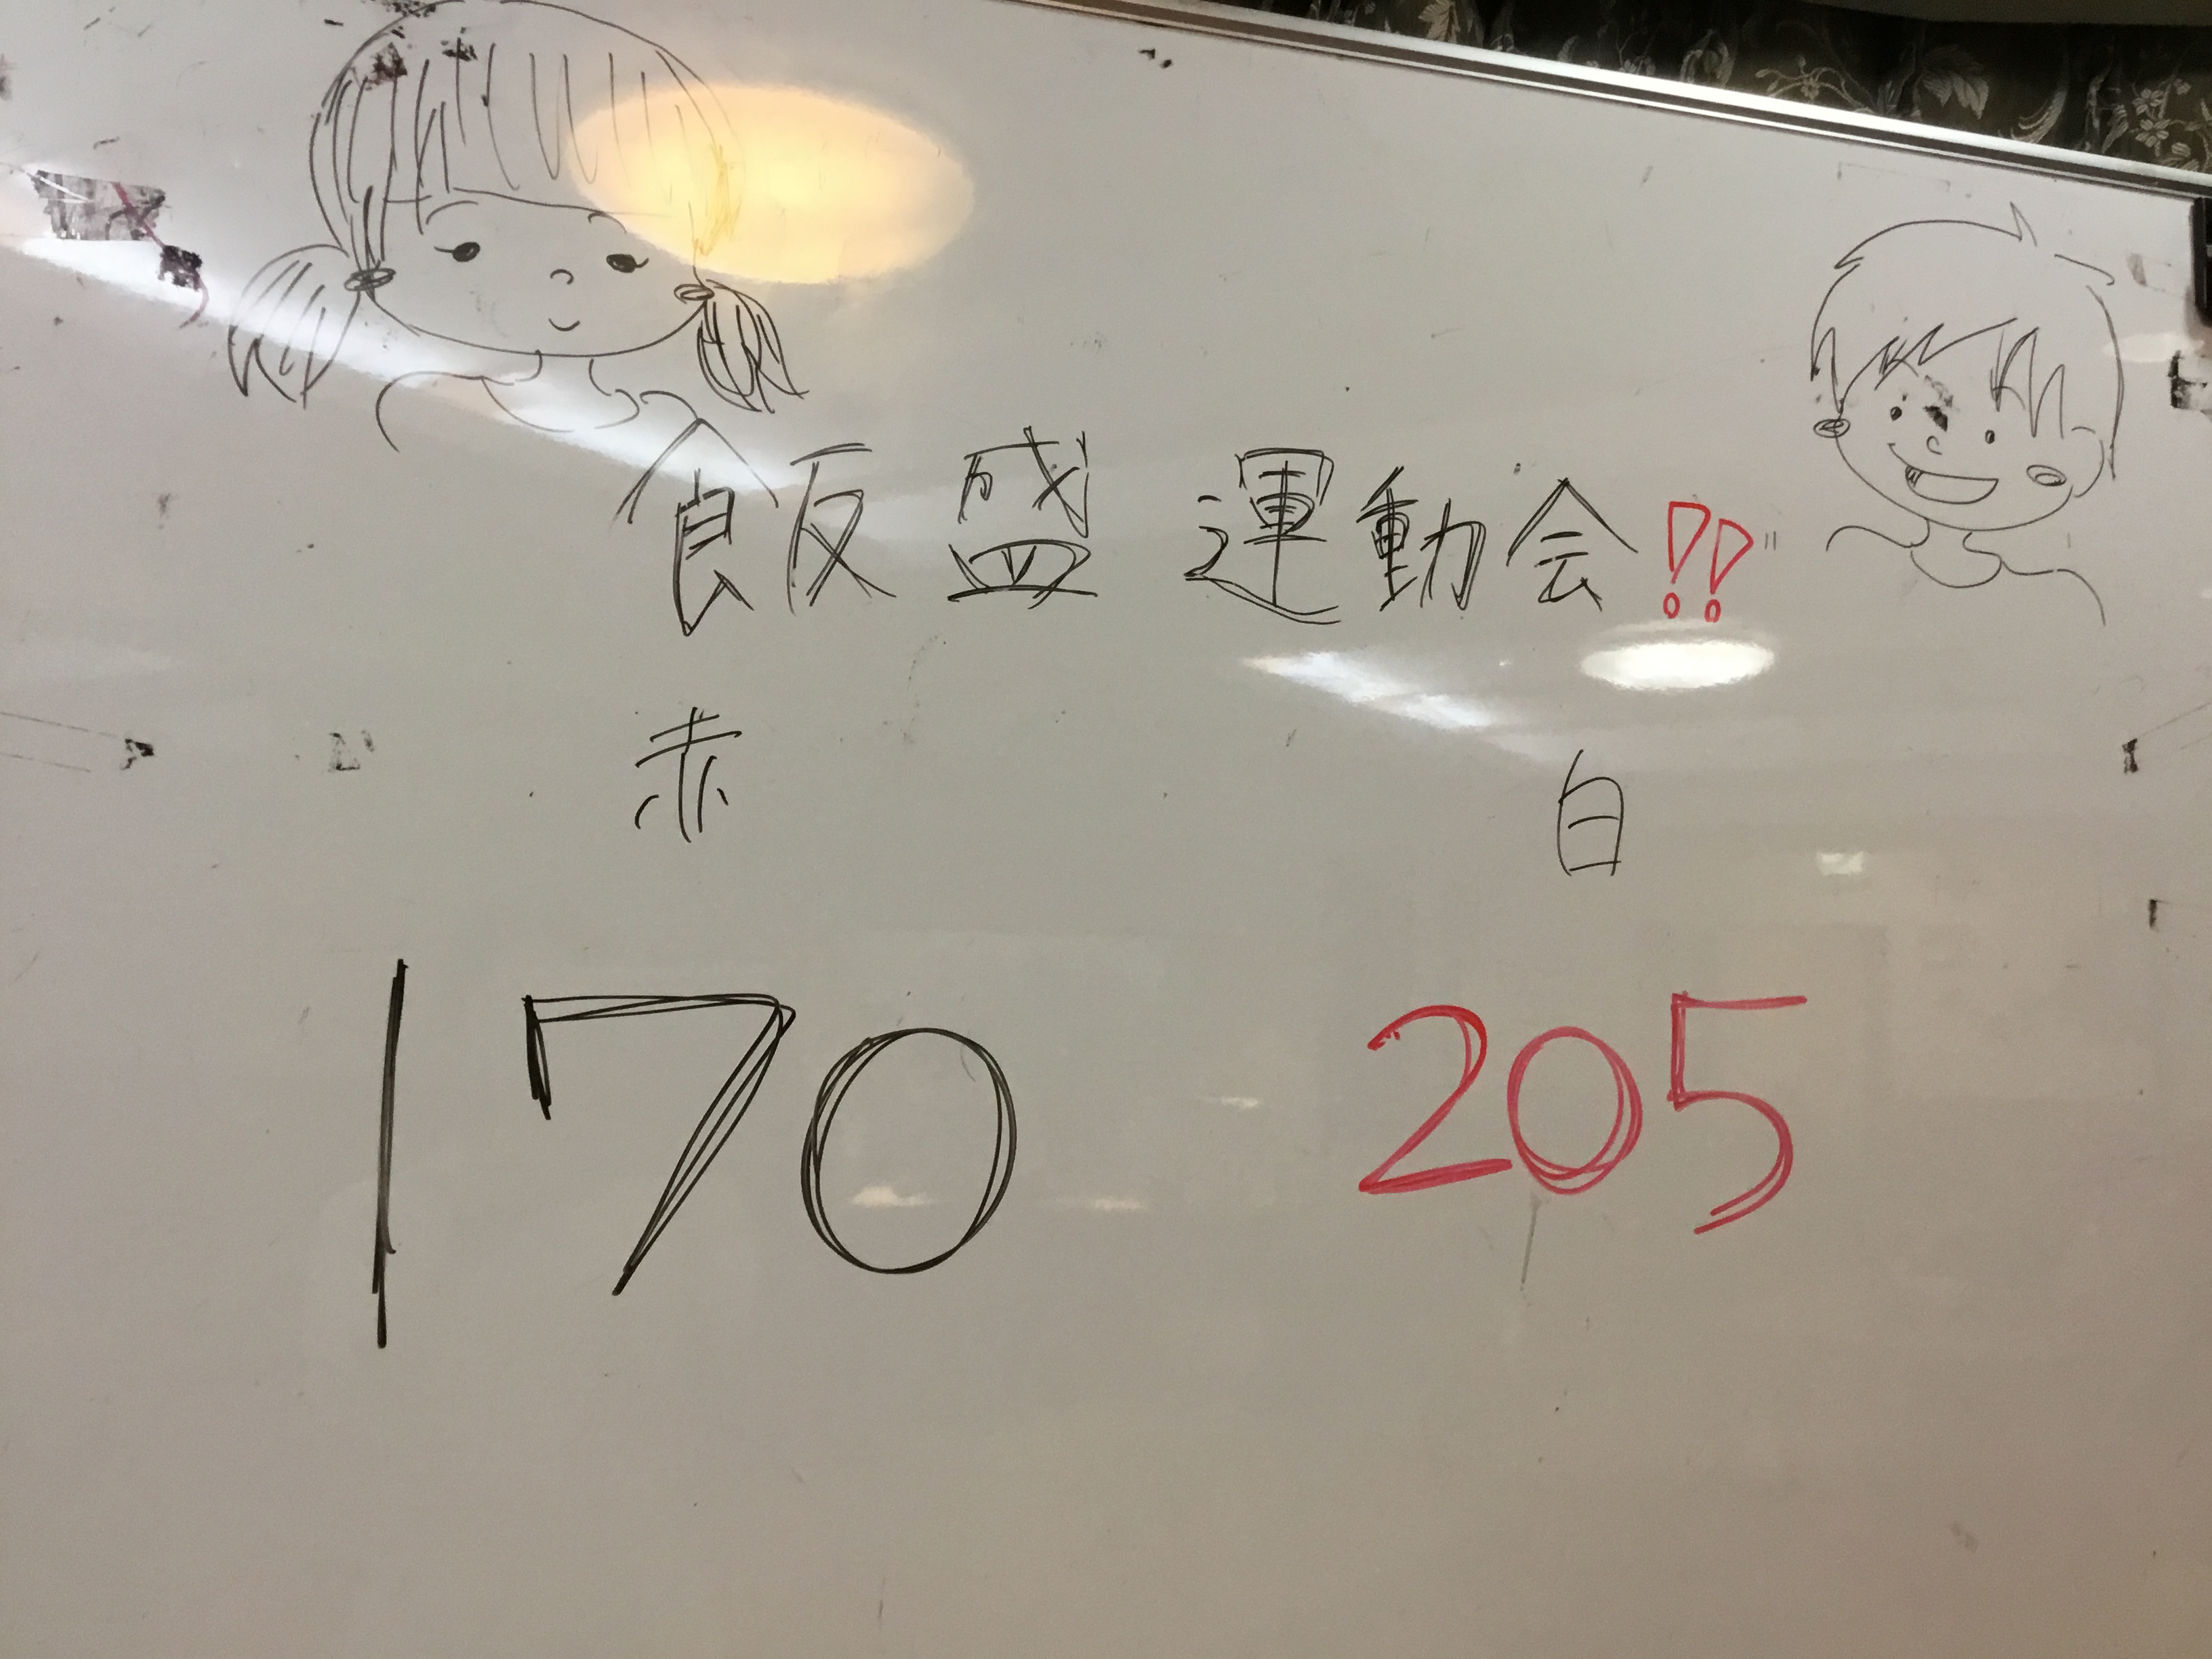 飯盛 運動会!!
赤 白
170 205